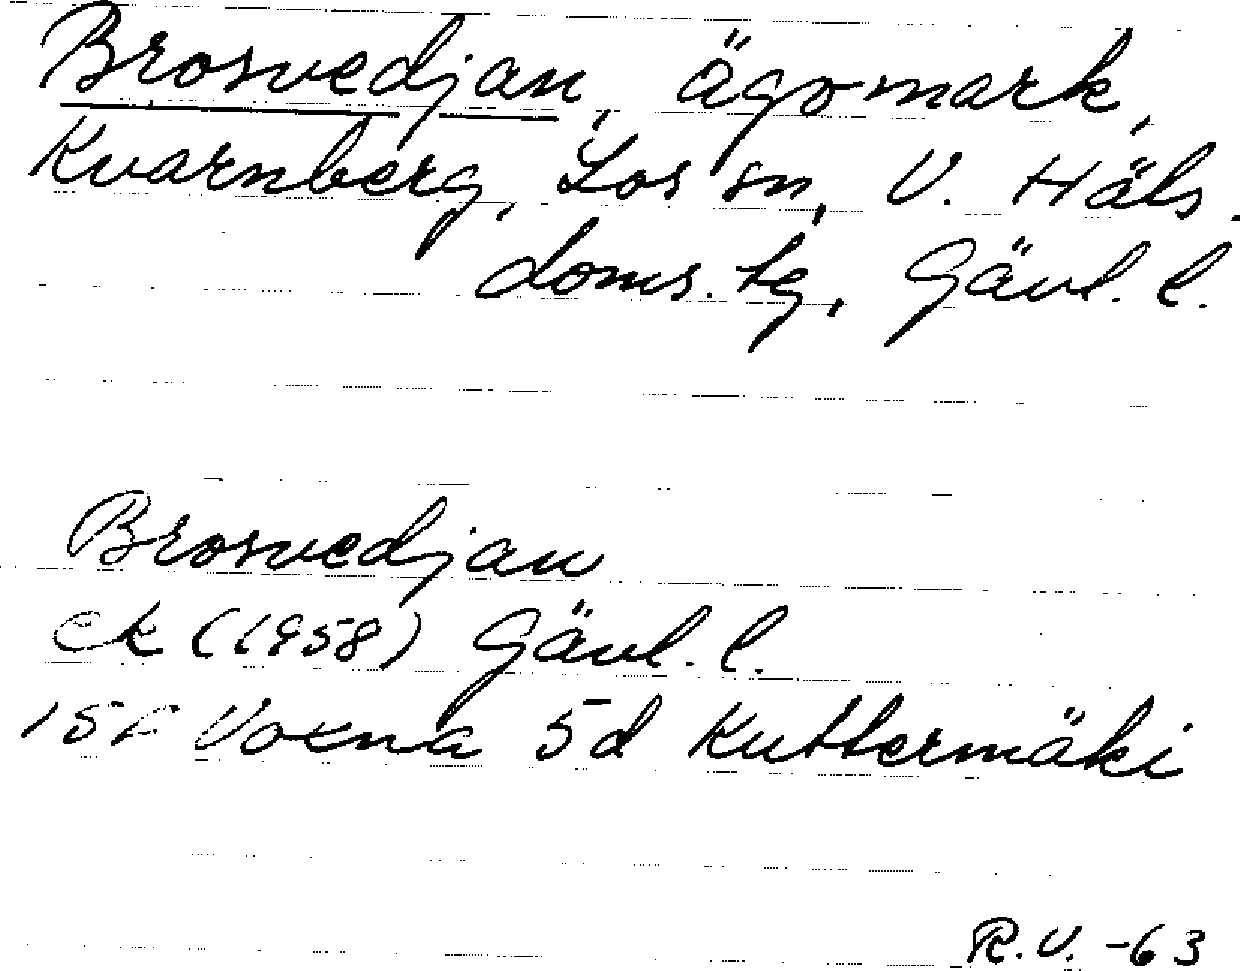 Brosvedjan, ägomark,
Kvarnberg, Los sn, V. Häls.
doms. tg, Gävl. l.
Brosvedjan
ek (1958) Gävl. l.
15F Voxna 5d Kuttermäki
R.V. -63